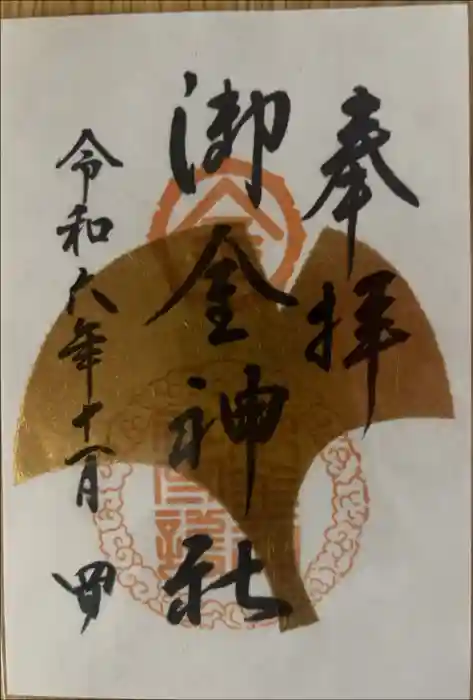 奉拝
御金神社
令和六年十一月四